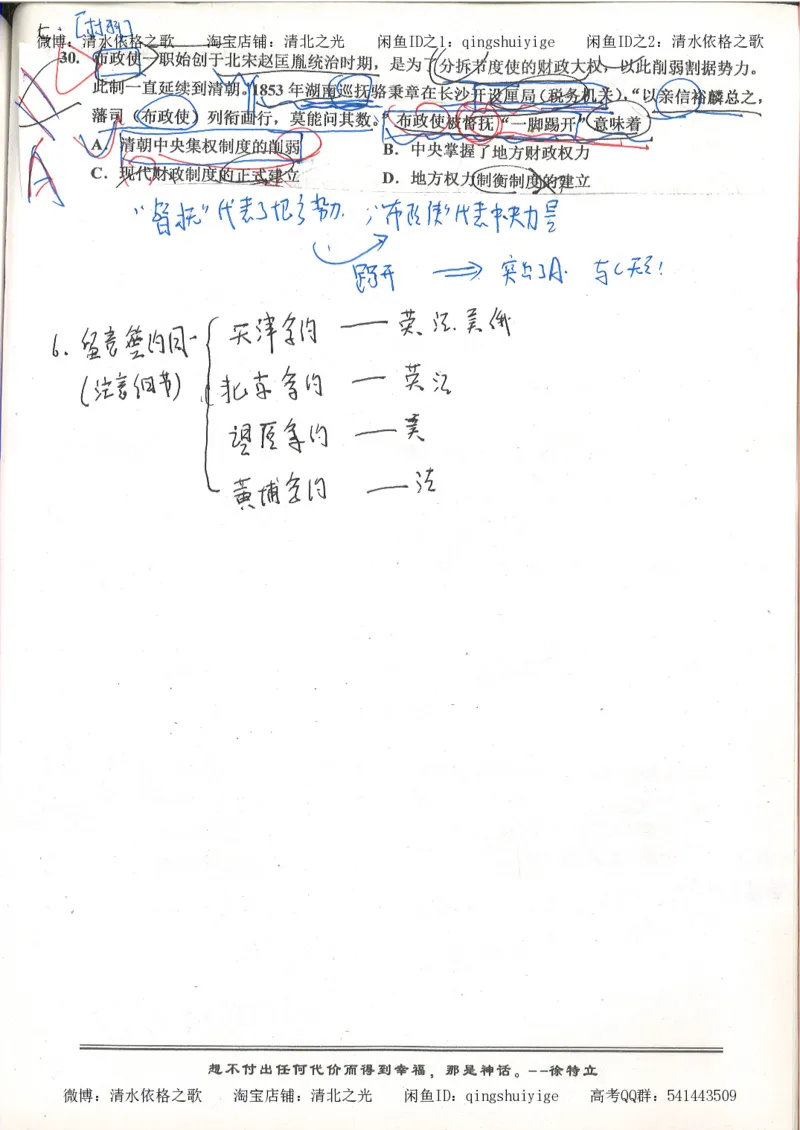 5. [材料]
微博：清水依格之歌 淘宝店铺：清北之光 闲鱼ID之1：qingshuiyige 闲鱼ID之2：清水依格之歌
30. 布政使一职始创于北宋赵匡胤统治时期，是为了分拆节度使的财政大权，以此削弱割据势力。
此制一直延续到清朝。1853年湖南巡抚骆秉章在长沙开设厘局（税务机关），“以亲信裕麟总之，
藩司（布政使）列衔画行，莫能问其数。”布政使被督抚“一脚踢开”意味着
A．清朝中央集权制度的削弱 B．中央掌握了地方财政权力
C．现代财政制度的正式建立 D．地方权力制衡制度的建立
A
“督抚”代表了地方势力，“布政使”代表中央力量
踢开 ⟹ 突出了A. 与C无关！
6. 留意签约国
天津条约 — 英.法.美.俄
(注意细节)
北京条约 — 英法
望厦条约 — 美
黄埔条约 — 法
想不付出任何代价而得到幸福，那是神话。--徐特立
微博：清水依格之歌 淘宝店铺：清北之光 闲鱼ID：qingshuiyige 高考QQ群：541443509